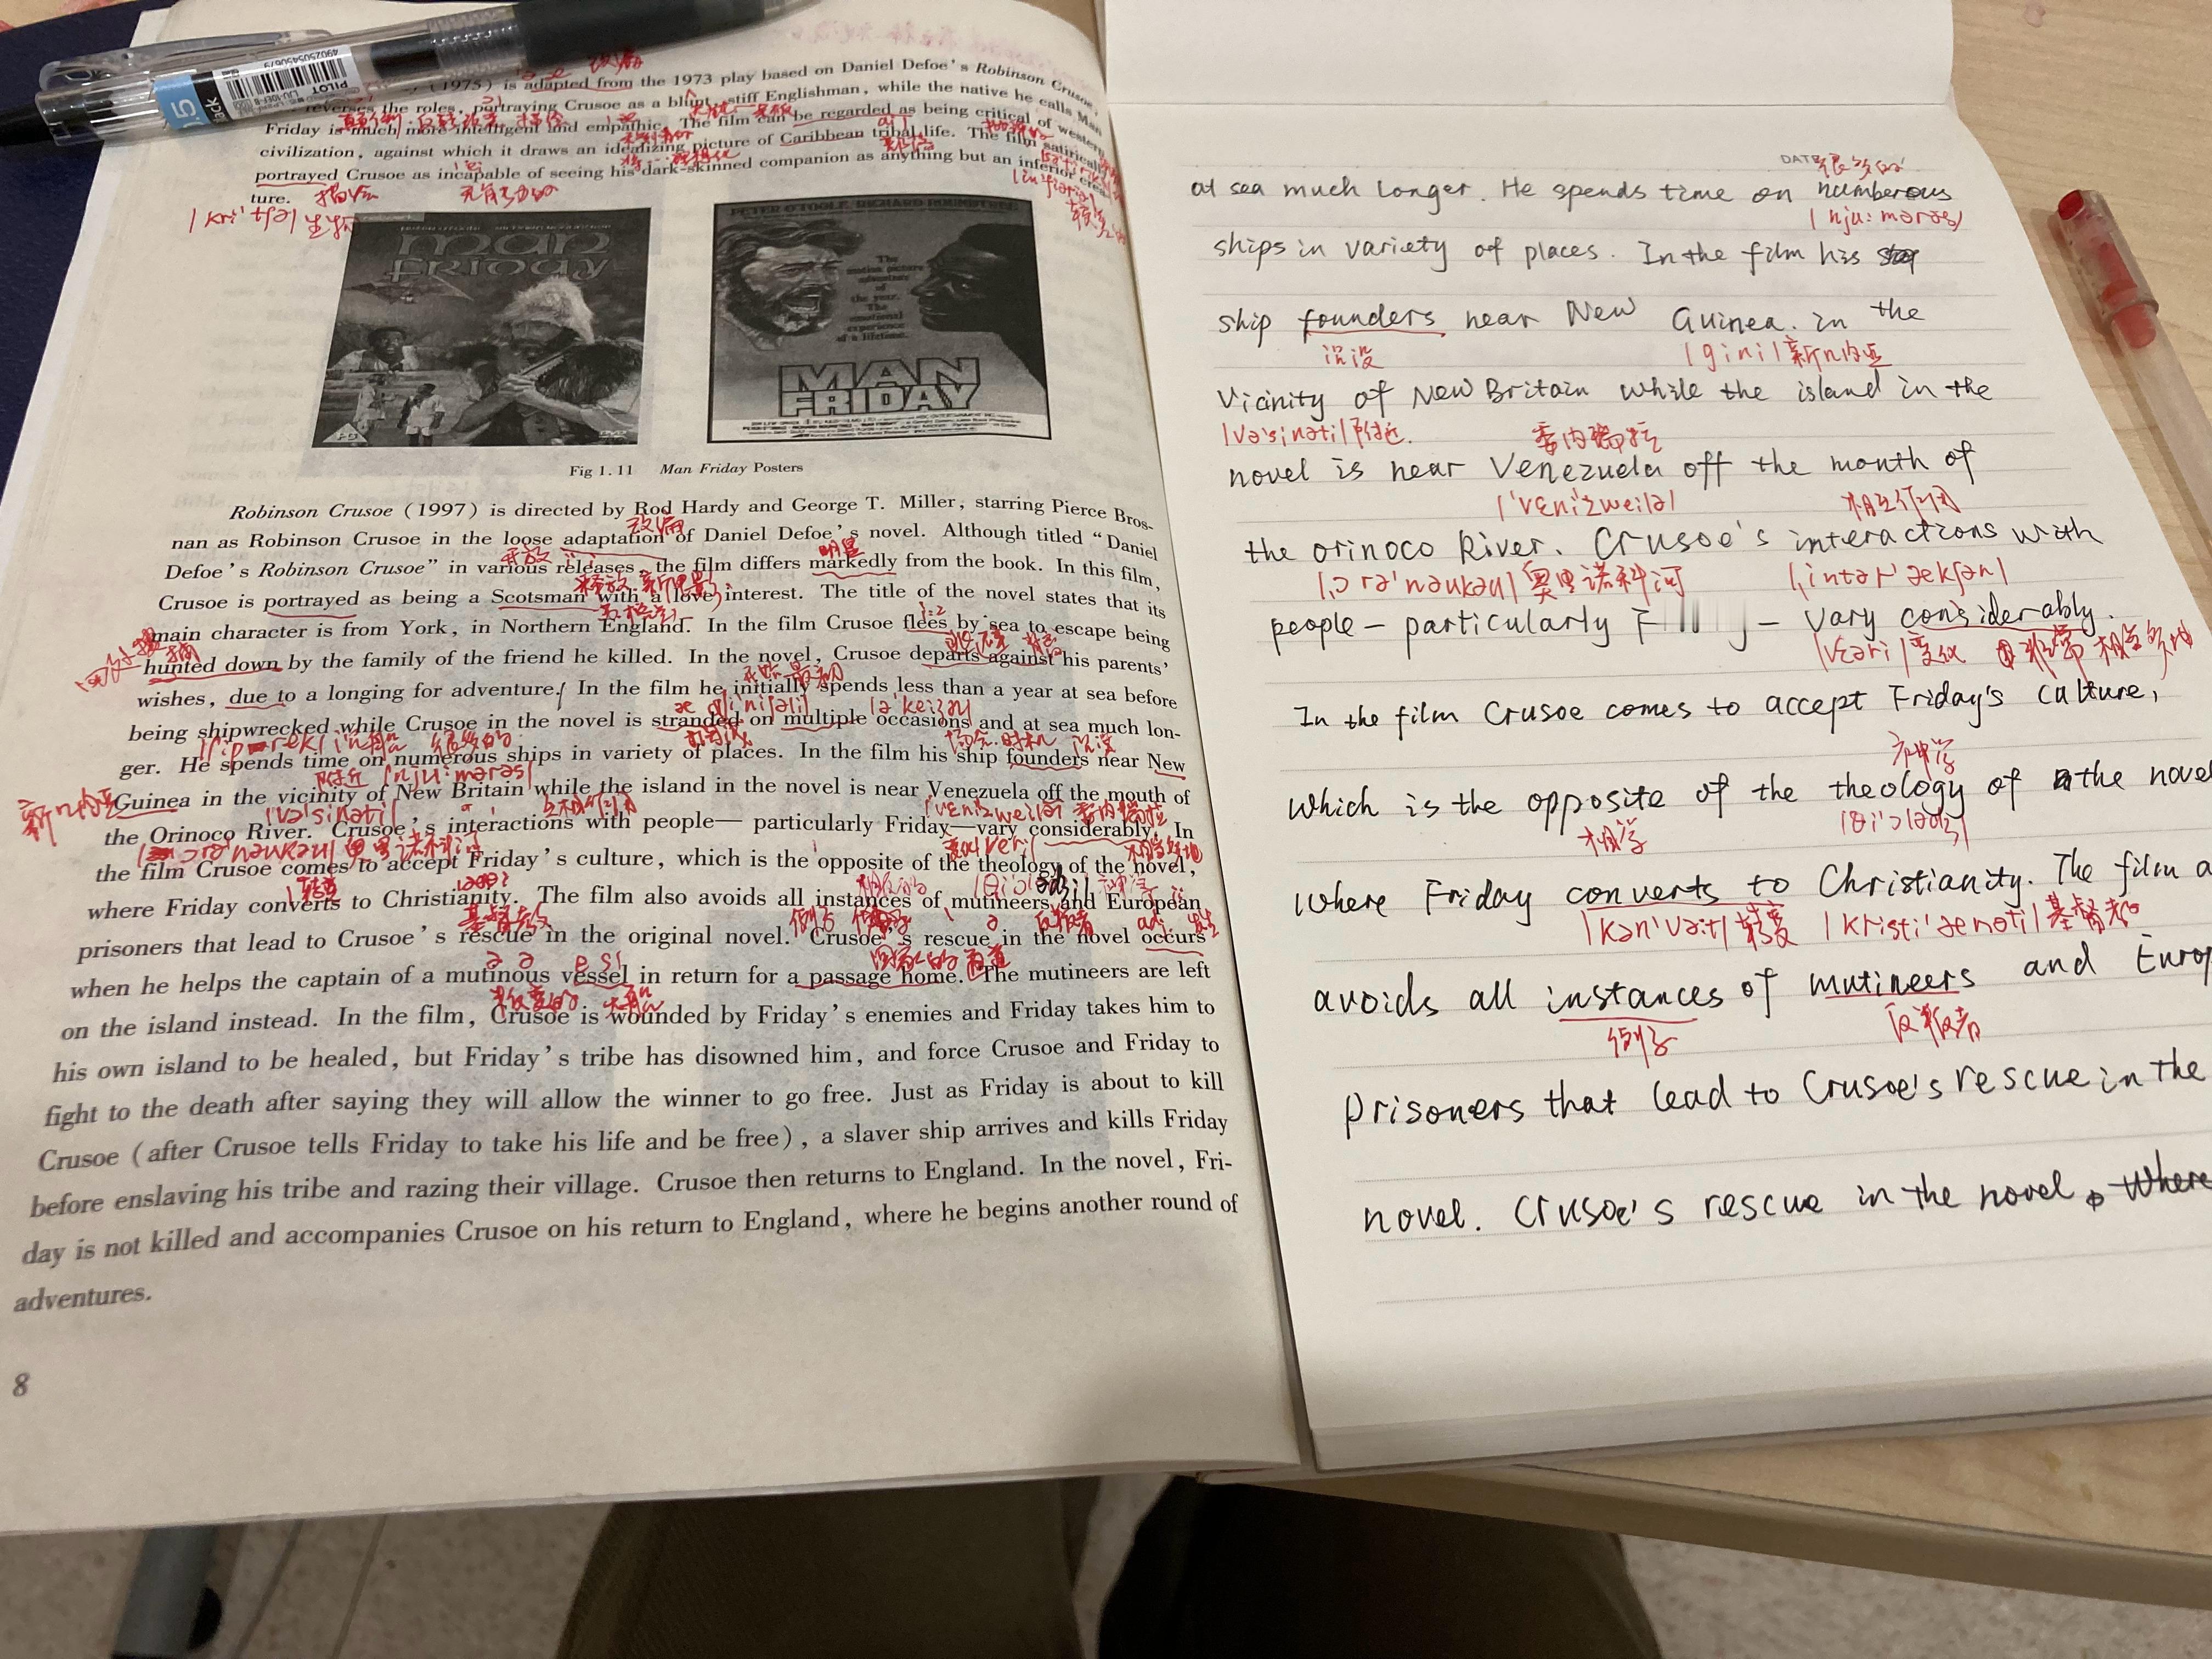 4902505450679
PILOT
0.5
(1975) is adapted from the 1973 play based on Daniel Defoe's Robinson Crusoe,
reverses the roles, portraying Crusoe as a blunt, stiff Englishman, while the native he calls Man
Friday is much more intelligent and empathic. The film can be regarded as being critical of western
civilization, against which it draws an idealizing picture of Caribbean tribal life. The film satirically
portrayed Crusoe as incapable of seeing his dark-skinned companion as anything but an inferior crea-
ture.
man
FRIDAY
PETER O'TOOLE, RICHARD ROUNDTREE
The
motion picture
adventure
of
the year.
The
emotional
experience
of a lifetime.
MAN
FRIDAY
Fig 1.11 Man Friday Posters
Robinson Crusoe (1997) is directed by Rod Hardy and George T. Miller, starring Pierce Bros-
nan as Robinson Crusoe in the loose adaptation of Daniel Defoe's novel. Although titled “Daniel
改编
Defoe's Robinson Crusoe” in various releases, the film differs markedly from the book. In this film,
明显
Crusoe is portrayed as being a Scotsman with a love interest. The title of the novel states that its
main character is from York, in Northern England. In the film Crusoe flees by sea to escape being
hunted down by the family of the friend he killed. In the novel, Crusoe departs against his parents'
wishes, due to a longing for adventure. In the film he initially spends less than a year at sea before
being shipwrecked while Crusoe in the novel is stranded on multiple occasions and at sea much lon-
ger. He spends time on numerous ships in variety of places. In the film his ship founders near New
Guinea in the vicinity of New Britain while the island in the novel is near Venezuela off the mouth of
the Orinoco River. Crusoe's interactions with people— particularly Friday—vary considerably. In
the film Crusoe comes to accept Friday's culture, which is the opposite of the theology of the novel,
where Friday converts to Christianity. The film also avoids all instances of mutineers and European
基督教
prisoners that lead to Crusoe's rescue in the original novel. Crusoe's rescue in the novel occurs
when he helps the captain of a mutinous vessel in return for a passage home. The mutineers are left
on the island instead. In the film, Crusoe is wounded by Friday's enemies and Friday takes him to
his own island to be healed, but Friday's tribe has disowned him, and force Crusoe and Friday to
fight to the death after saying they will allow the winner to go free. Just as Friday is about to kill
Crusoe (after Crusoe tells Friday to take his life and be free), a slaver ship arrives and kills Friday
before enslaving his tribe and razing their village. Crusoe then returns to England. In the novel, Fri-
day is not killed and accompanies Crusoe on his return to England, where he begins another round of
adventures.
8
DATE
很多的
at sea much longer. He spends time on numberous
|nju:mərəs|
ships in variety of places. In the film his
ship founders near New Guinea. in the
沉没 |gini|新几内亚
Vicinity of New Britain while the island in the
|və'sinəti|附近. 委内瑞拉
novel is near Venezuela off the month of
|'vɛni'zweilə| 相互作用
the orinoco River. Crusoe's interactions with
|,ɔrə'nəukəu|奥里诺科河 |,intər'ækʃən|
people – particularly – vary considerably.
|vɛəri|变化 非常 相当多地
In the film Crusoe comes to accept Friday's culture,
神学
which is the opposite of the theology of the novel
相学 |θi'ɔlədʒi|
Where Friday converts to Christianity. The film a
|kən'vəit|转变 |kristi'ænəti|基督教
avoids all instances of mutineers and Europ
例子 反叛者
prisoners that lead to Crusoe's rescue in the
novel. Crusoe's rescue in the novel, Where